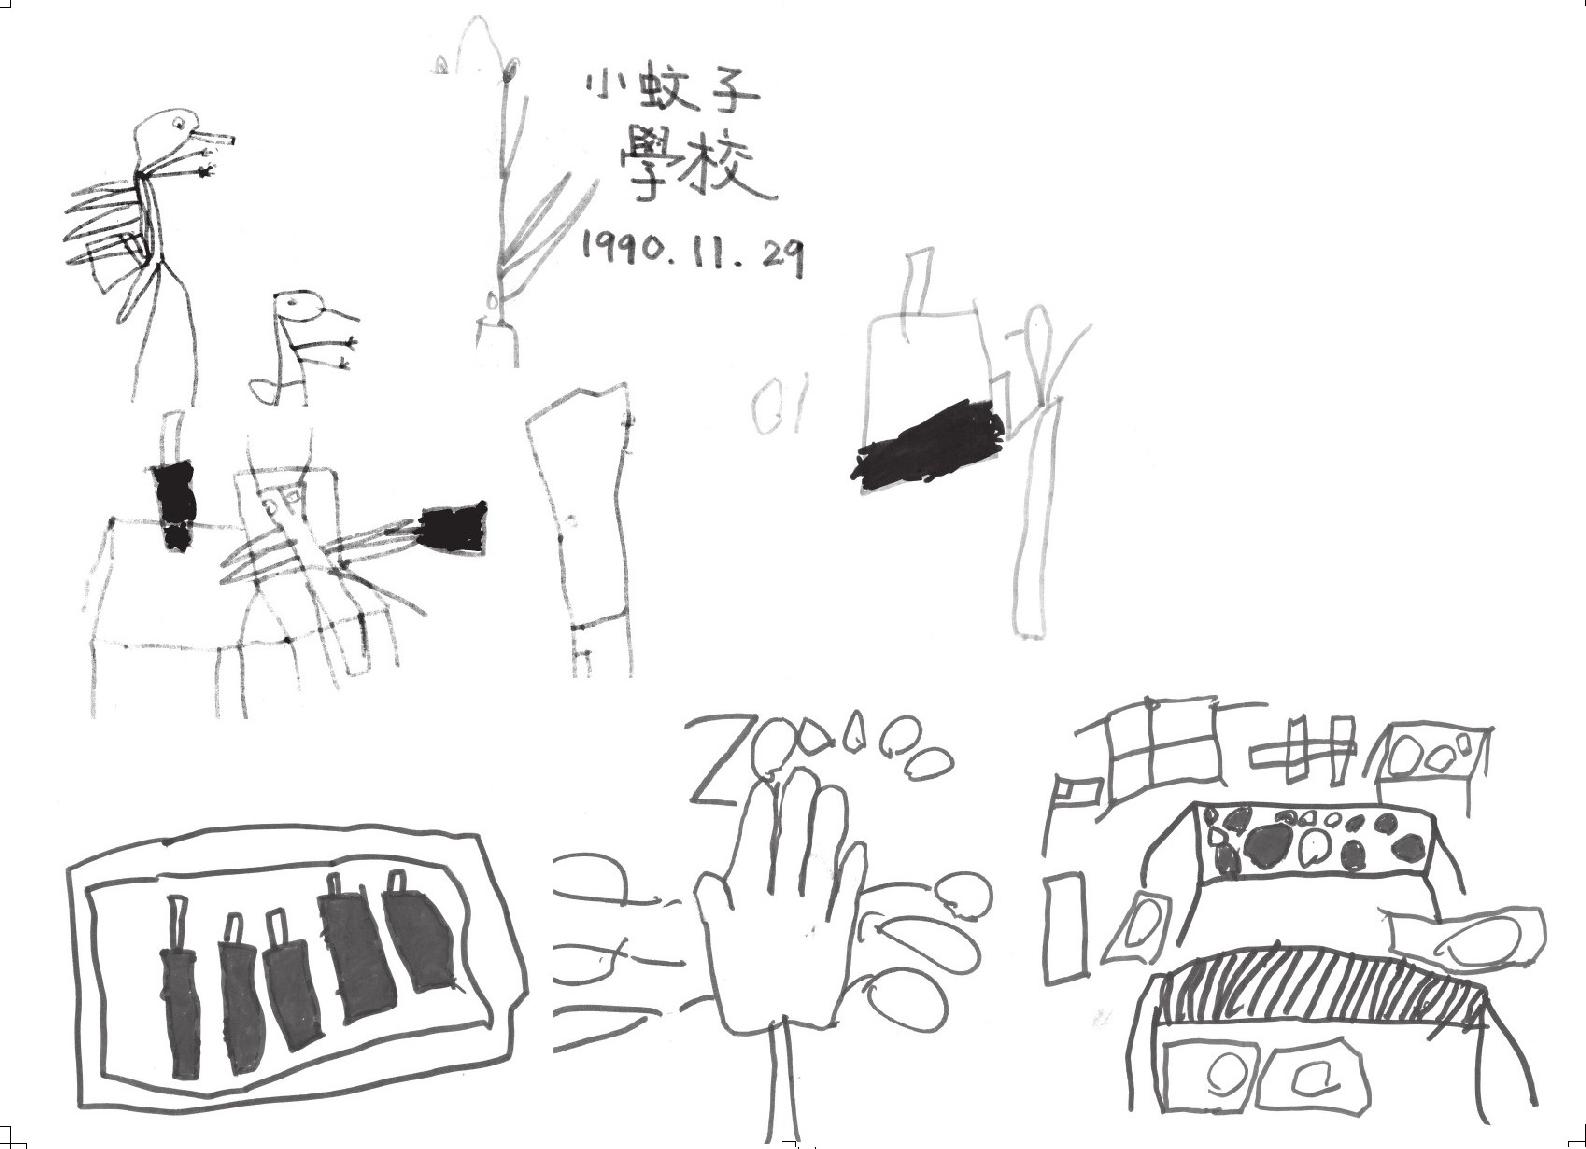 小蚊子
學校
1990.11.29
Z